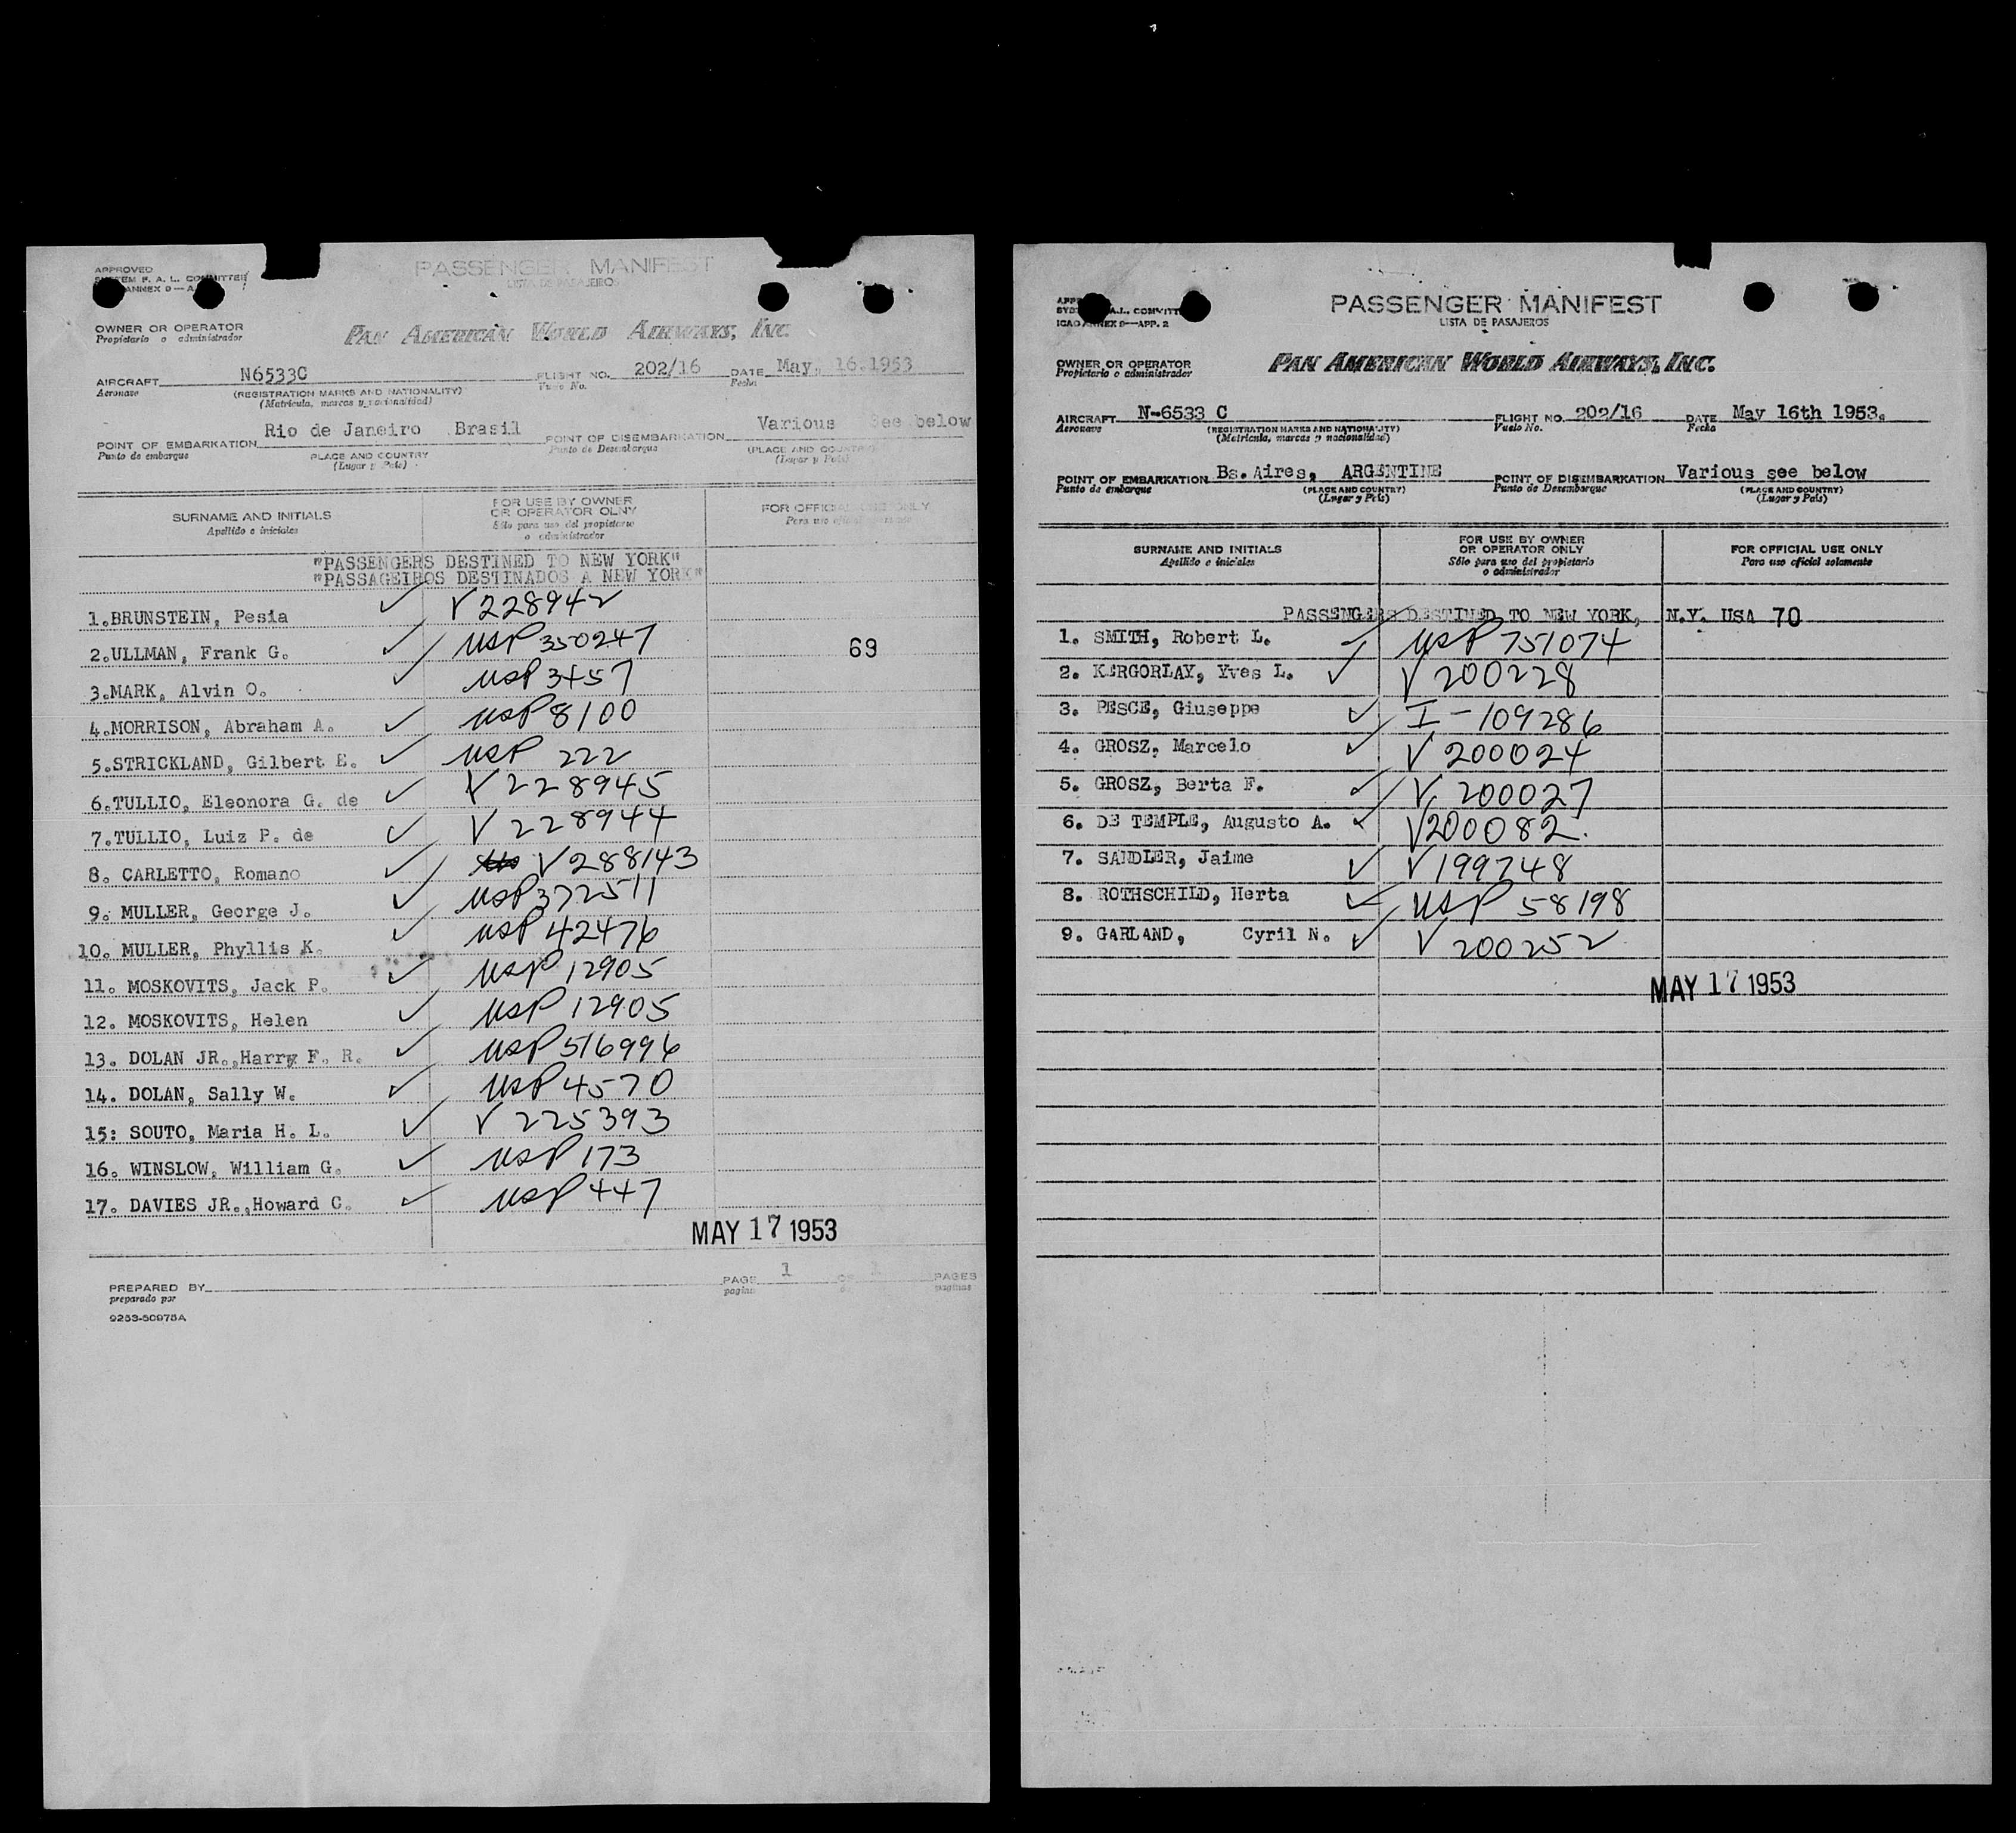 APPROVED
SYSTEM F. A. L. COMMITTEE
ANNEX 9—A
PASSENGER MANIFEST
LISTA DE PASAJEROS
OWNER OR OPERATOR
Propietario o administrador
PAN AMERICAN WORLD AIRWAYS, INC.
AIRCRAFT N6533C FLIGHT NO. 202/16 DATE May, 16.1953
Aeronave (REGISTRATION MARKS AND NATIONALITY) Vuelo No. Fecha
(Matricula, marcas y nacionalidad)
POINT OF EMBARKATION Rio de Janeiro Brasil POINT OF DISEMBARKATION Various See below
Punto de embarque PLACE AND COUNTRY Punto de Desembarque (PLACE AND COUNTRY)
(Lugar y Pais) (Lugar y Pais)
SURNAME AND INITIALS FOR USE BY OWNER FOR OFFICIAL USE ONLY
OR OPERATOR OLNY
Apellido e iniciales Sólo para uso del propietario Para uso oficial
o administrador
"PASSENGERS DESTINED TO NEW YORK"
"PASSAGEIROS DESTINADOS A NEW YORK"
1.BRUNSTEIN, Pesia ✓ V 228942
2.ULLMAN, Frank G. ✓ USP 350247 69
3.MARK, Alvin O. ✓ USP 3457
4.MORRISON, Abraham A. ✓ USP 8100
5.STRICKLAND, Gilbert E. ✓ USP 222
6.TULLIO, Eleonora G. de ✓ V 228945
7.TULLIO, Luiz P. de ✓ V 228944
8. CARLETTO, Romano ✓ V 288143
9. MULLER, George J. ✓ USP 372511
10. MULLER, Phyllis K. ✓ USP 42476
11. MOSKOVITS, Jack P. ✓ USP 12905
12. MOSKOVITS, Helen ✓ USP 12905
13. DOLAN JR.,Harry F. R. ✓ USP 516996
14. DOLAN, Sally W. ✓ USP 4570
15: SOUTO, Maria H. L. ✓ V 225393
16. WINSLOW, William G. ✓ USP 173
17. DAVIES JR.,Howard C. ✓ USP 447
MAY 17 1953
PREPARED BY PAGE 1 OF 1 PAGES
preparado por pagina de paginas
9253-50975A
A.L. COMMITT
ICAO ANNEX 9—APP. 2
PASSENGER MANIFEST
LISTA DE PASAJEROS
OWNER OR OPERATOR
Propietario o administrador
PAN AMERICAN WORLD AIRWAYS, INC.
AIRCRAFT N-6533 C FLIGHT NO. 202/16 DATE May 16th 1953.
Aeronave (REGISTRATION MARKS AND NATIONALITY) Vuelo No. Fecha
(Matricula, marcas y nacionalidad)
POINT OF EMBARKATION Bs. Aires, ARGENTINE POINT OF DISEMBARKATION Various see below
Punto de embarque (PLACE AND COUNTRY) Punto de Desembarque (PLACE AND COUNTRY)
(Lugar y Pais) (Lugar y Pais)
SURNAME AND INITIALS FOR USE BY OWNER FOR OFFICIAL USE ONLY
OR OPERATOR ONLY
Apellido e iniciales Sólo para uso del propietario Para uso oficial solamente
o administrador
PASSENGERS DESTINED TO NEW YORK, N.Y. USA 70
1. SMITH, Robert L. ✓ USP 751074
2. KERGORLAY, Yves L. ✓ V 200228
3. PESCE, Giuseppe ✓ I-109286
4. GROSZ, Marcelo ✓ V 200024
5. GROSZ, Berta F. ✓ V 200027
6. DE TEMPLE, Augusto A. ✓ V200082.
7. SANDLER, Jaime ✓ V 199748
8. ROTHSCHILD, Herta ✓ USP 58198
9. GARLAND, Cyril N. ✓ V 200252
MAY 17 1953